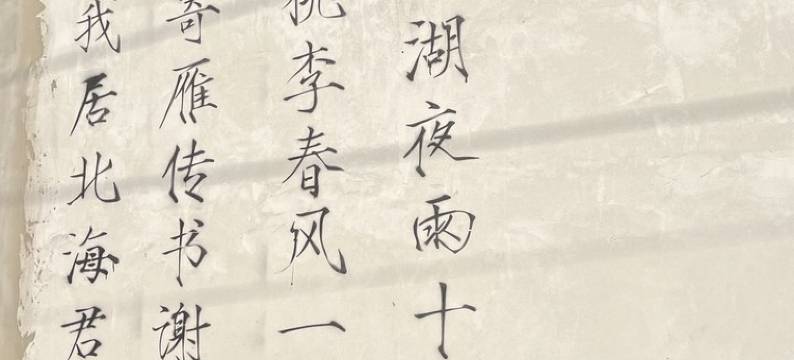 我居北海君
寄雁传书谢
桃李春风一
湖夜雨十